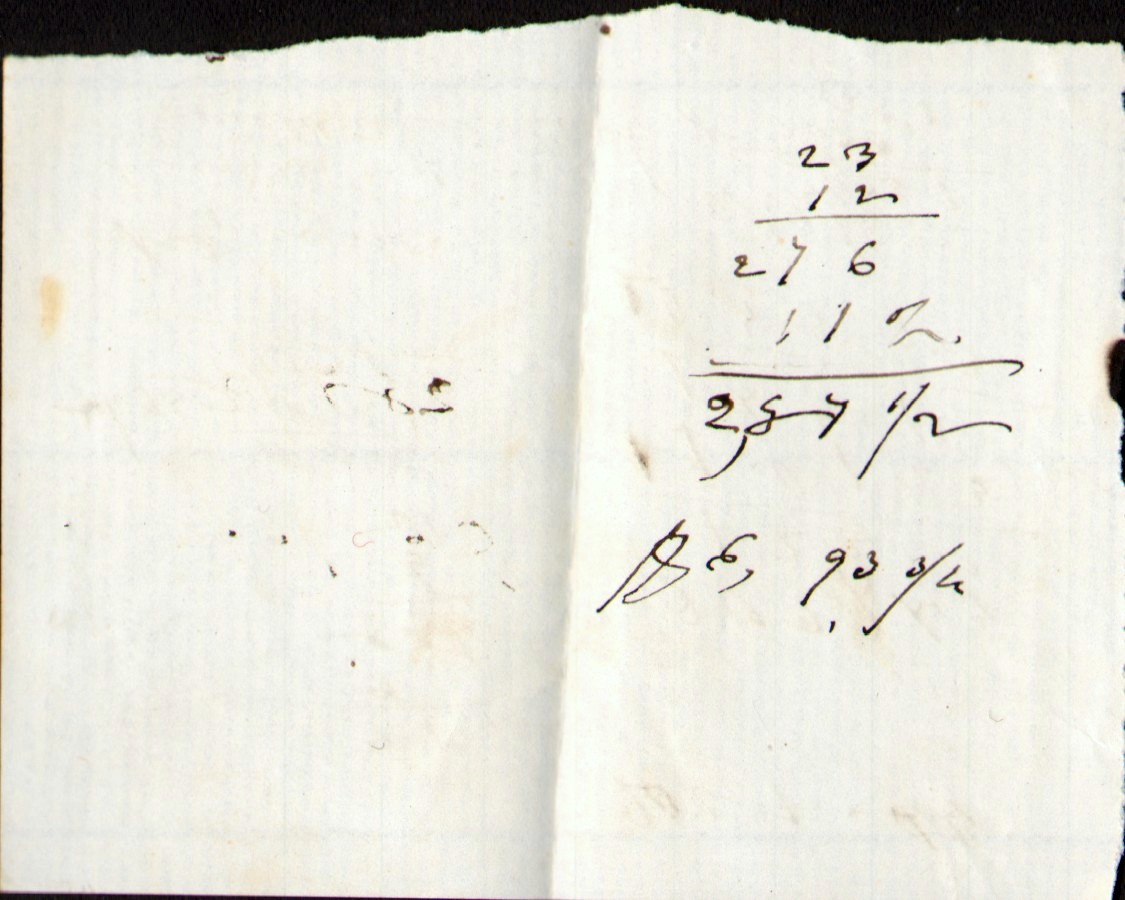 23
12
276
11 1/2
287 1/2
$ 6, 93 3/4